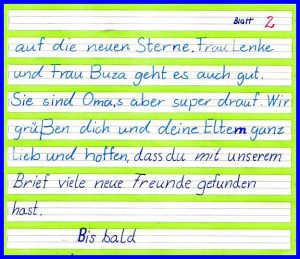 Blatt 2
auf die neuen Sterne. Frau Lenke
und Frau Buza geht es auch gut.
Sie sind Oma,s aber super drauf. Wir
grüßen dich und deine Eltern ganz
lieb und hoffen, dass du mit unserem
Brief viele neue Freunde gefunden
hast.
Bis bald